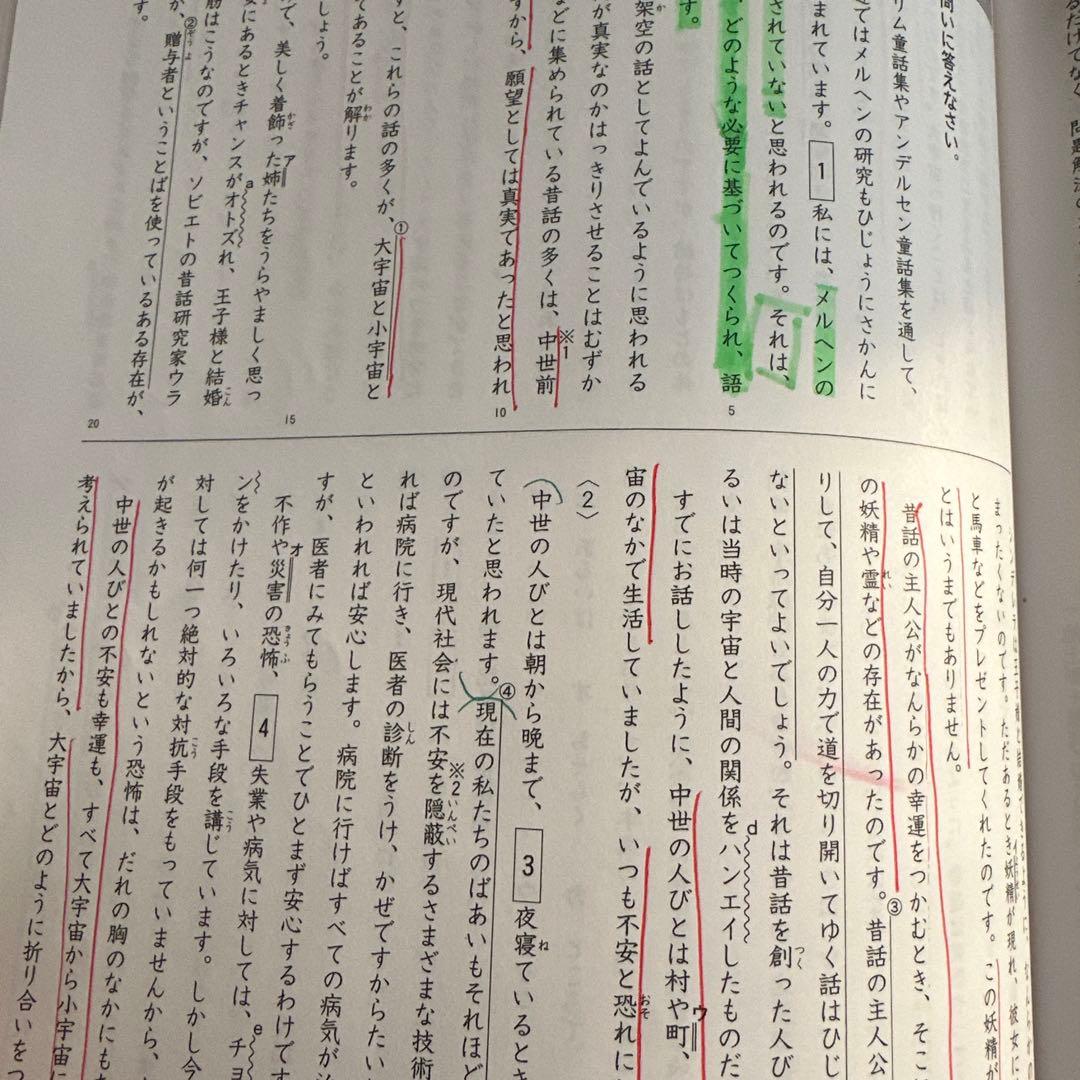 問いに答えなさい。
リム童話集やアンデルセン童話集を通して、
てはメルヘンの研究もひじょうにさかんに
まれています。 1 私には、メルヘンの
されていないと思われるのです。それは、
どのような必要に基づいてつくられ、語
す。
架空の話としてよんでいるように思われる
が真実なのかはっきりさせることはむずか
どに集められている昔話の多くは、※1中世前
すから、願望としては真実であったと思われ
すと、これらの話の多くが、①大宇宙と小宇宙と
てあることが解ります。
しょう。
て、美しく着飾った姉たちをうらやましく思っ
にあるときチャンスがオトズれ、王子様と結婚
筋はこうなのですが、ソビエトの昔話研究家ウラ
が、②贈与者ということばを使っているある存在が、
まったくないのです。ただあるとき妖精が現れ、彼女に
と馬車などをプレゼントしてくれたのです。この妖精が
とはいうまでもありません。
昔話の主人公がなんらかの幸運をつかむとき、そこ
の妖精や霊などの存在があったのです。③昔話の主人公
りして、自分一人の力で道を切り開いてゆく話はひじ
ないといってよいでしょう。それは昔話を創った人び
るいは当時の宇宙と人間の関係をハンエイしたものだ
すでにお話ししたように、中世の人びとは村や町、
宙のなかで生活していましたが、いつも不安と恐れに
〈2〉
中世の人びとは朝から晩まで、 3 夜寝ているとき
ていたと思われます。④現在の私たちのばあいもそれほど
のですが、現代社会には不安を※2隠蔽するさまざまな技術
れば病院に行き、医者の診断をうけ、かぜですからたい
といわれれば安心します。病院に行けばすべての病気が
すが、医者にみてもらうことでひとまず安心するわけです
不作や災害の恐怖、 4 失業や病気に対しては、チヨ
ンをかけたり、いろいろな手段を講じています。しかし今
対しては何一つ絶対的な対抗手段をもっていませんから、
が起きるかもしれないという恐怖は、だれの胸のなかにも
中世の人びとの不安も幸運も、すべて大宇宙から小宇宙に
考えられていましたから、大宇宙とどのように折り合いをつ